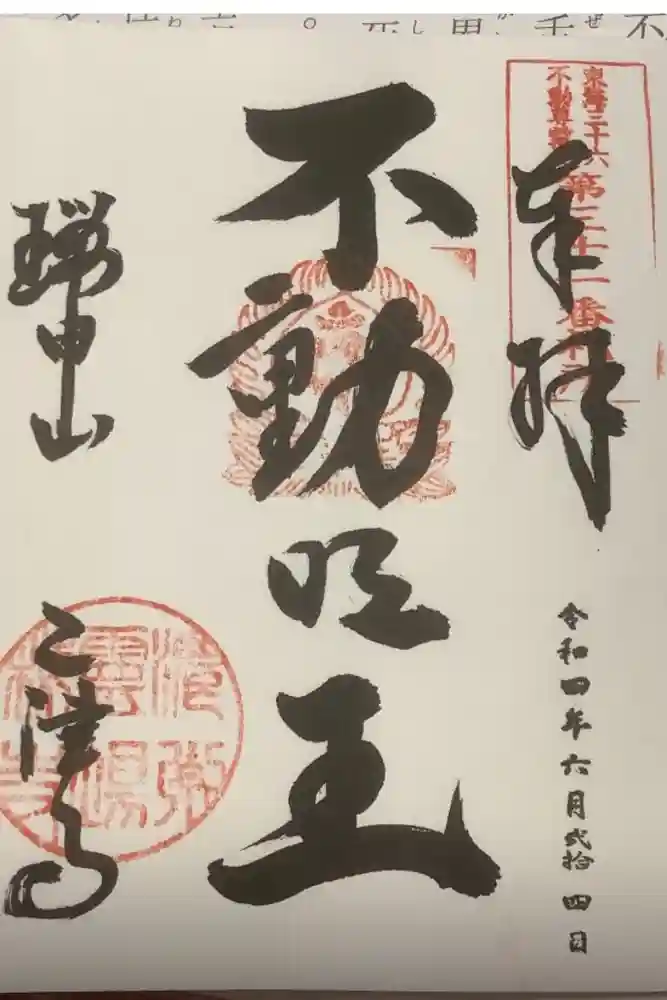 東海三十六
不動尊霊
第三十一番札所
奉拝
令和四年六月弐拾四日
不動明王
瑞甲山
乙津寺